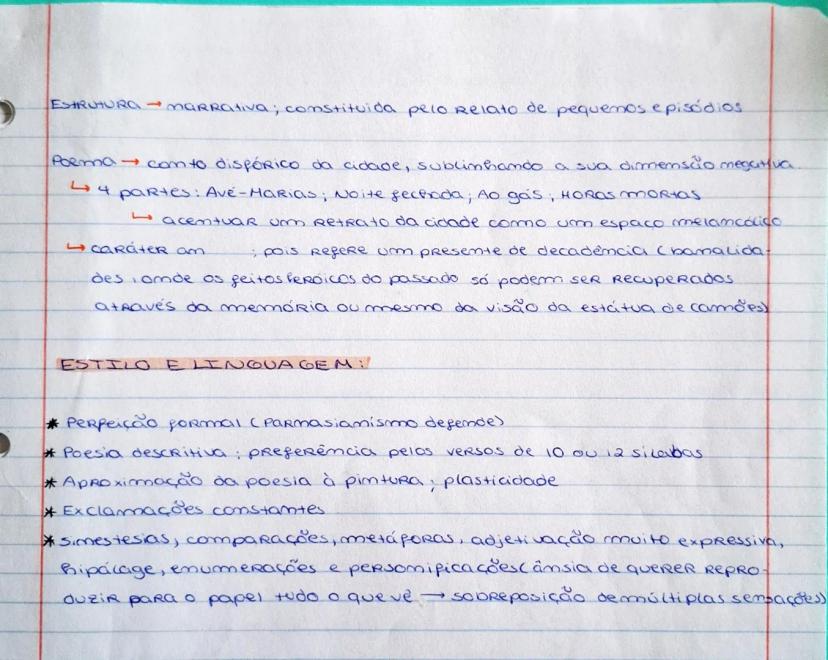 ESTRUTURA → narrativa; constituida pelo relato de pequenos episódios
Poema → canto disfórico da cidade, sublinhando a sua dimensão negativa.
↳ 4 partes: Avé-Marias; Noite fechada; Ao gás; Horas mortas
↳ acentuar um retrato da cidade como um espaço melancólico
↳ caráter an ; pois refere um presente de decadência (banalida-
des, onde os feitos heróicos do passado só podem ser recuperados
através da memória ou mesmo da visão da estátua de camões)
ESTILO E LINGUAGEM:
* Perfeição formal (Parnasianismo defende)
* Poesia descritiva; preferência pelos versos de 10 ou 12 silabas
* Aproximação da poesia à pintura; plasticidade
* Exclamações constantes
* sinestesias, comparações, metáforas, adjetivação muito expressiva,
hipálage, enumerações e personificações (ânsia de querer repro-
duzir para o papel tudo o que vê → sobreposição de múltiplas sensações)